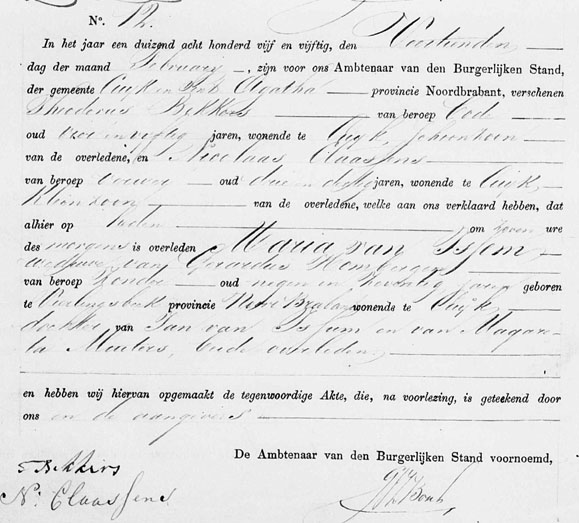 No. 12.
In het jaar een duizend acht honderd vijf en vijftig, den Veertienden
dag der maand February, zijn voor ons Ambtenaar van den Burgerlijken Stand,
der gemeente Cuijk en Sint Agatha provincie Noordbrabant, verschenen
Theodorus Bekkers van beroep Bode
oud en vijftig jaren, wonende te Cuijk,
van de overledene, en Nicolaas Claassens
van beroep oud drie en dertig jaren, wonende te Cuijk,
Kleinzoon van de overledene, welke aan ons verklaard hebben, dat
alhier op heden om zeven ure
des morgens is overleden Maria van Issem
weduwe van Gerardus
van beroep Zonder oud negen en jaren geboren
te provincie Noord Braband wonende te Cuijk
dochter van Jan van Issum en van Magare-
ta Meulers, beide overleden,
en hebben wij hiervan opgemaakt de tegenwoordige Akte, die, na voorlezing, is geteekend door
ons en de aangevers
De Ambtenaar van den Burgerlijken Stand voornoemd,
T Bekkers
N: Claassens